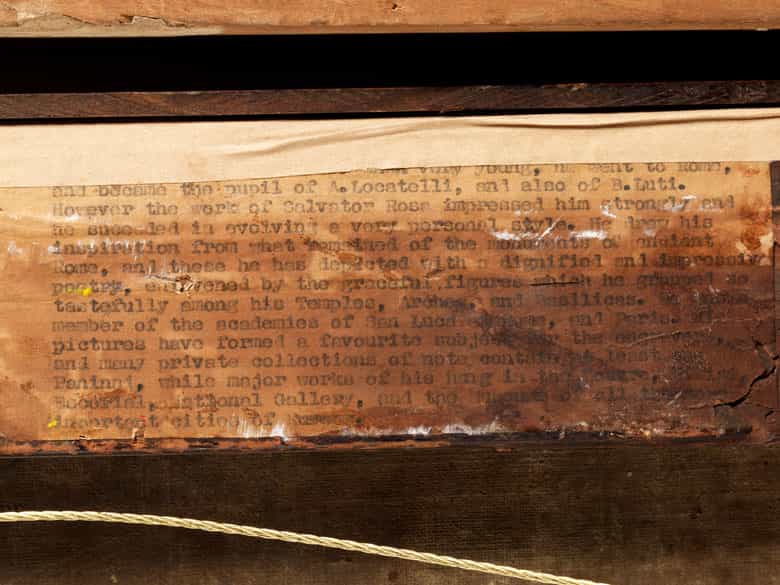 very young, he went to Rome,
and became the pupil of A.Locatelli, and also of B.Luti.
However the work of Salvator Rosa impressed him strongly and
he succeded in evolving a very personal style. He drew his
inspiration from what remained of the monuments of ancient
Rome, and these he has depicted with a dignified and impressive
poetry, enlivened by the graceful figures which he grouped so
tastefully among his Temples, Arches, and Basilicas. He
member of the academies of San Luca and Paris.
pictures have formed a favourite subject for the
and many private collections of note contain at least
Pannini, while major works of his hung in the
Escorial, National Gallery, and the of all the
important cities of